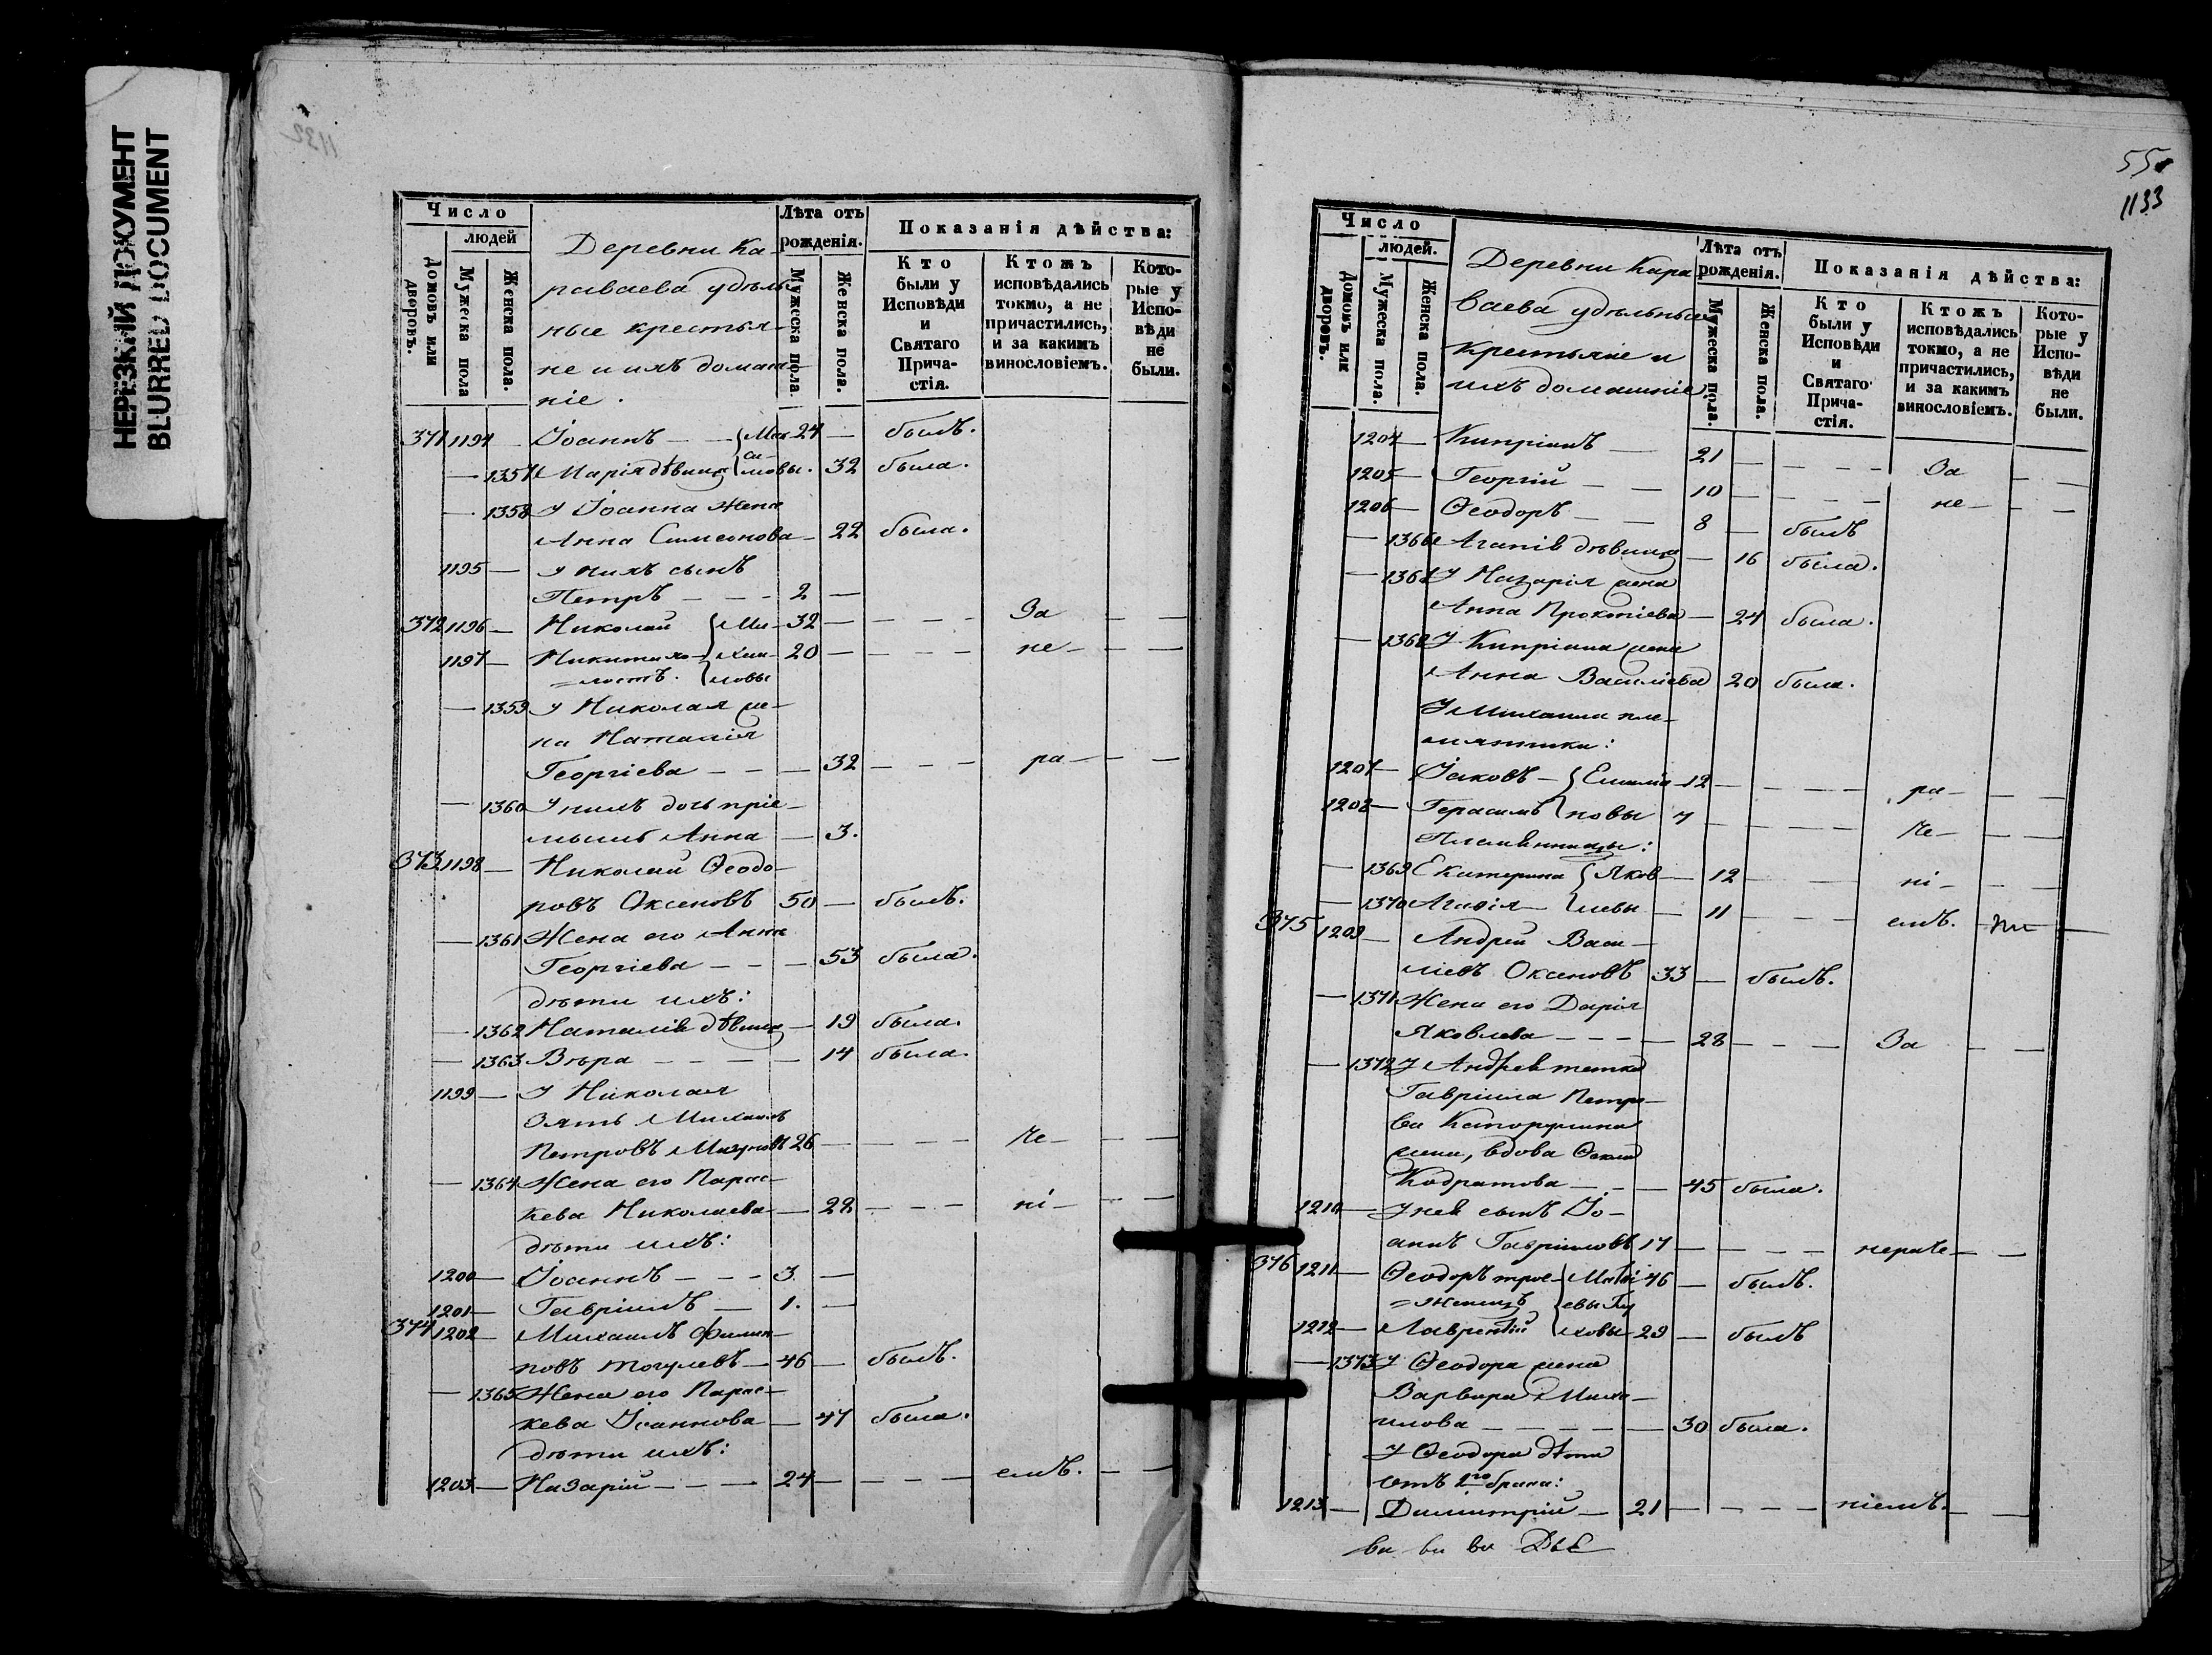 НЕРЕЗКИЙ ДОКУМЕНТ
BLURRED DOCUMENT
1132
Число
людей
Домовъ или дворовъ.
Мужеска пола
Женска пола.
Деревни Ка-
раваева удѣль-
ные крестья-
не и ихъ домаш-
ніе.
Лѣта отъ рожденія.
Мужеска пола
Женска пола.
Показанія дѣйства:
Кто были у Исповѣди и Святаго Прича-стія.
Ктожъ исповѣдались токмо, а не причастились, и за какимъ винословіемъ.
Кото-рые у Испо-вѣди не были.
371 1194 — Іоаннъ — 24 — былъ.
— 1357 Марія дѣвица 32 была.
— 1358 У Іоанна жена
Анна Симеонова — 22 была.
1195 — У нихъ сынъ
Петръ — — - 2 —
372 1196 — Николай 32 — — — — За — —
1197 — 20 — — — — не — — —
— 1359 У Николая же-
на Наталія
Георгіева — — — 32 — — — ра — — —
— 1360 У нихъ дочь пріе-
мышъ Анна — 3.
373 1198 — Николай Ѳеодо-
ровъ Оксеновъ 50 — былъ.
— 1361 Жена его Анна
Георгіева — — — 53 была.
дѣти ихъ:
— 1362 Наталія дѣвица — 19 была.
— 1363 Вѣра — — — — 14 была.
1199 — У Николая
Зять Михаилъ
Петровъ 26 — — — — че — — —
— 1364 Жена его Парас-
кева Николаева — 22 — — — ні — — —
дѣти ихъ:
1200 — Іоаннъ — — - 3. —
1201 — Гавріилъ — 1. —
374 1202 — Михаилъ Филип-
повъ — 46 — былъ.
— 1365 Жена его Парас-
кева Іоаннова — 47 была.
дѣти ихъ:
1203 — Назарій — — — 24 — — — — емъ. — —
55
1133
Число
людей.
Домовъ или дворовъ.
Мужеска пола.
Женска пола.
Деревни Кара
ваева удѣльные
крестьяне и
ихъ домашніе
Лѣта отъ рожденія.
Мужеска пола.
Женска пола.
Показанія дѣйства:
Кто были у Исповѣди и Святаго Прича-стія.
Ктожъ исповѣдались токмо, а не причастились, и за какимъ винословіемъ.
Кото-рые у Испо-вѣди не были.
1204 — Кипріанъ — 21 — — — — За — —
1205 — Георгій — — 10 — — — — не — — —
1206 — Ѳеодоръ — — 8 — былъ
— 1366 Агапія дѣвица — 16 была.
— 1367 У Назарія жена
Анна — 24 была.
— 1368 У Кипріана жена
Анна Василіева 20 была.
У Михаила пле-
мянники:
1207 — Іаковъ — 12 — — — — ра — — —
1208 — Герасимъ 7 — — — — че — — —
Племянницы:
— 1369 Екатерина Яков — 12 — — ні — — —
— 1370 левы — 11 — — — емъ.
375 1209 — Андрей Васи-
ліевъ Оксеновъ 33 — былъ.
— 1371 Жена его Дарія
Яковлева — — — — 28 — — — За — —
— 1372 У Андрея тетка
Гавріила Петро-
ва
жена, вдова
Кодратова — — — 45 была.
1210 — У нея сынъ Іо-
аннъ Гавріиловъ 17 — — — — нераче — —
376 1211 — Ѳеодоръ трое- Матѳі 46 — былъ.
= женецъ евы
1212 — Лаврентій 29 — былъ
— 1373 У Ѳеодора жена
Варвара Миха-
илова — — — — — 30 была.
У Ѳеодора дѣти
отъ 2го брака:
1213 — Димитрій — 21 — — — — ніемъ. — —